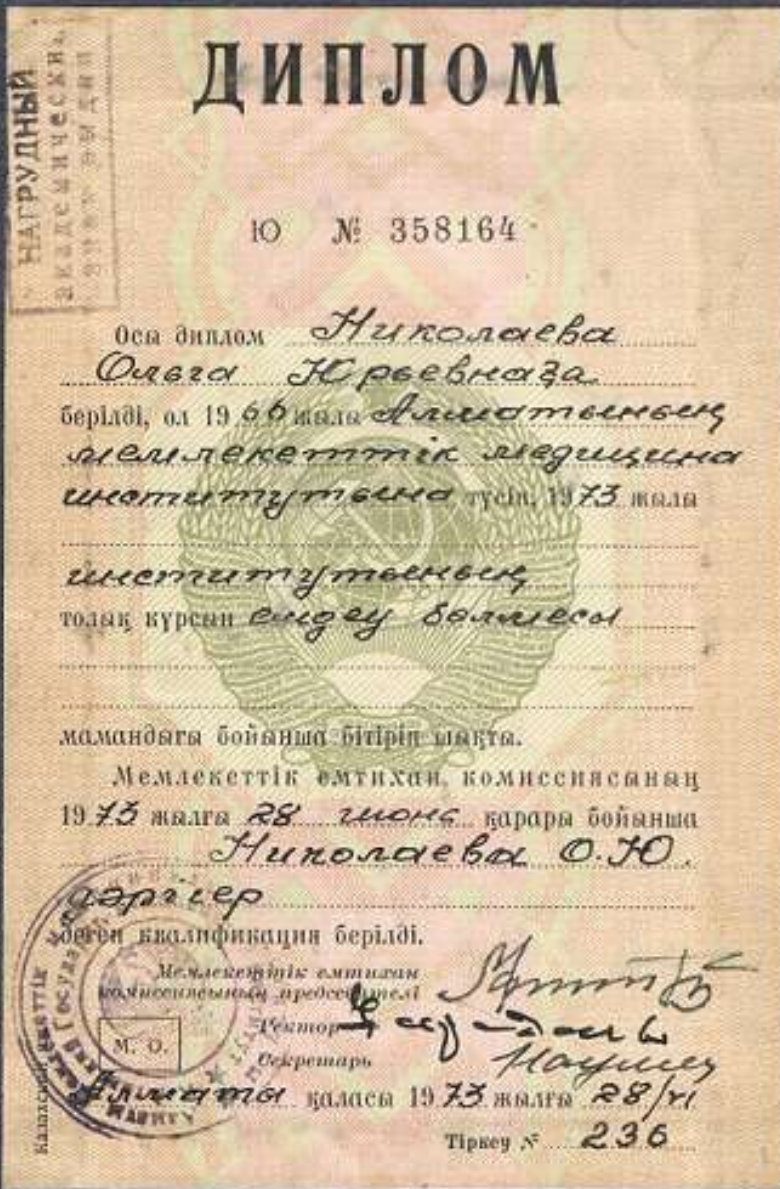 ДИПЛОМ
НАГРУДНЫЙ
Ю № 358164
Осы диплом Николаева
Ольга Юрьевнаға
берілді, ол 1966 жылы Алматының
мемлекеттік медицина
институтына түсіп, 1973 жылы
институтының
толық курсын емдеу бөлмесы
мамандығы бойынша бітіріп шықты.
Мемлекеттік емтихан комиссиясының
1973 жылғы 28 июнь қарары бойынша
Николаева О.Ю.
дәрігер
деген квалификация берілді.
Мемлекеттік емтихан
комиссиясының председателі
Ректор
Секретарь
М. О.
Алматы қаласы 1973 жылғы 28/VI
Тіркеу № 236